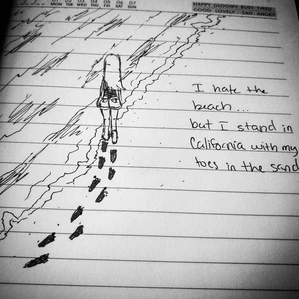 01 02 03 04 05 06 07
MON TUE WED THU FRI SAT SUN
HAPPY GLOOMY BUSY TIRED
GOOD LOVELY SAD ANGRY
I hate the
beach...
but I stand in
California with my
toes in the sand